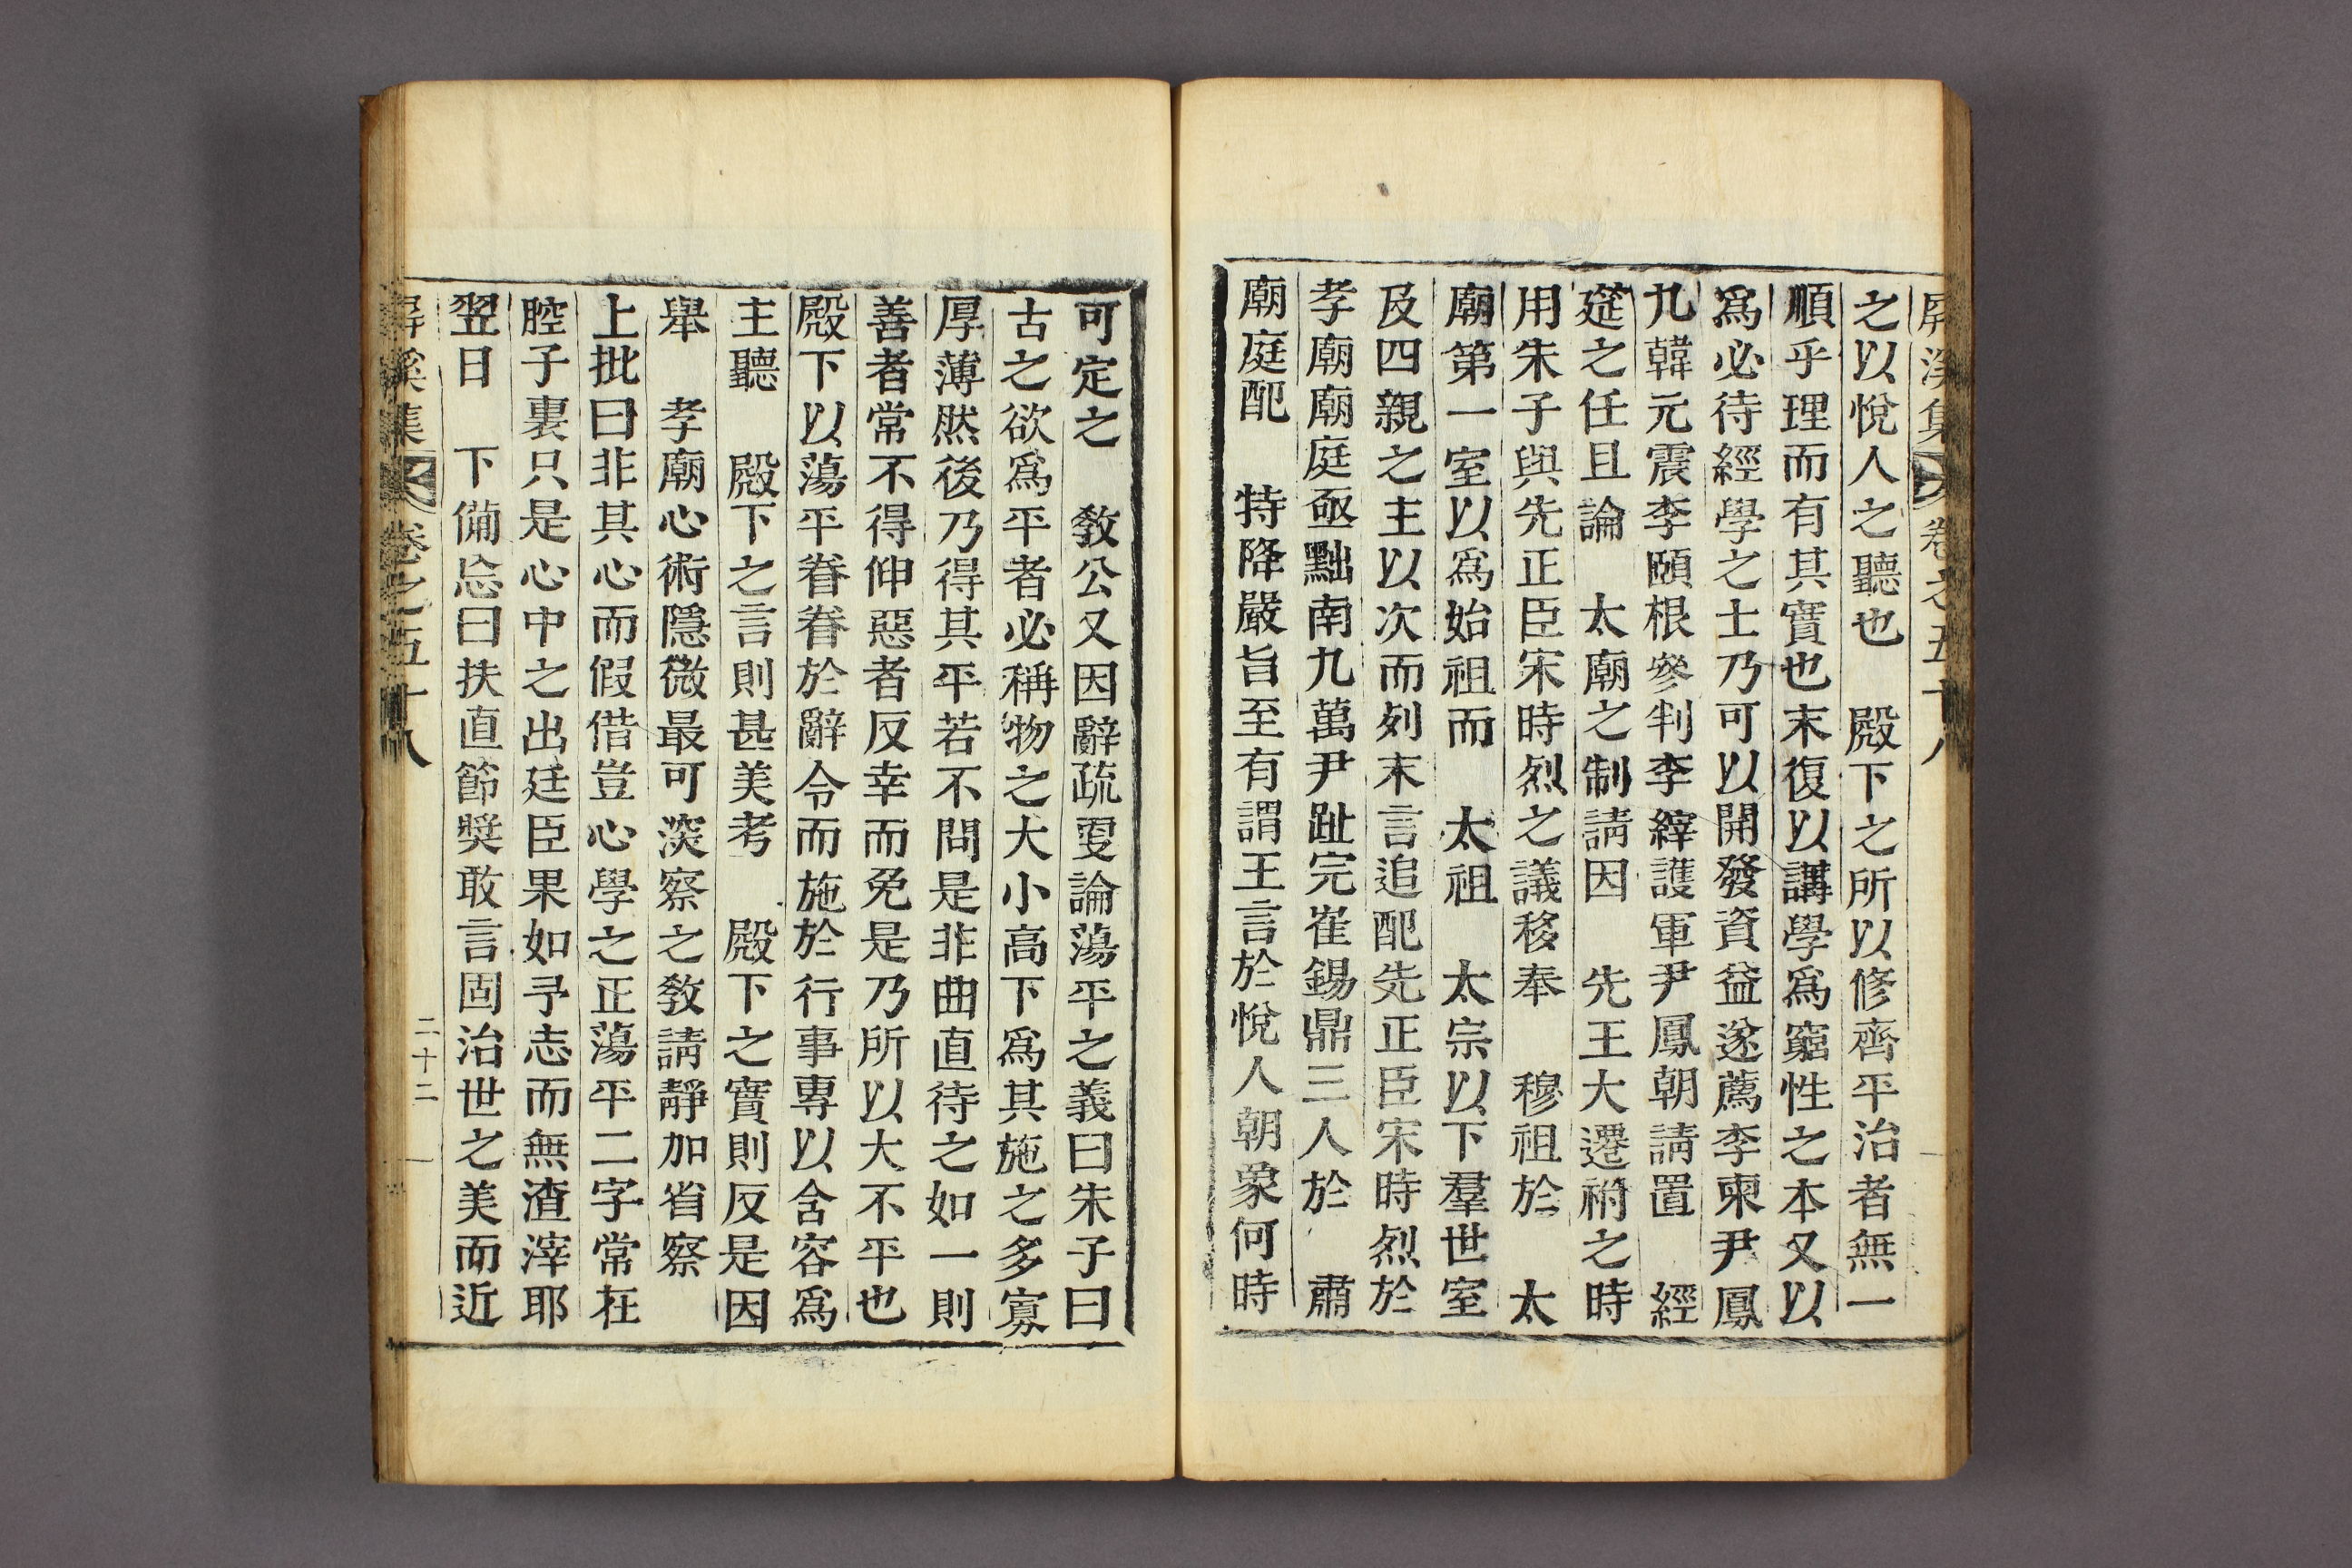 屏溪集 卷之五十八
之以悅人之聽也 殿下之所以修齊平治者無一
順乎理而有其實也末復以講學爲窮性之本又以
爲必待經學之士乃可以開發資益遂薦李柬尹鳳
九韓元震李頤根參判李縡護軍尹鳳朝請置 經
筵之任且論 太廟之制請因 先王大遷祔之時
用朱子與先正臣宋時烈之議移奉 穆祖於 太
廟第一室以爲始祖而 太祖 太宗以下羣世室
及四親之主以次而列末言追配先正臣宋時烈於
孝廟廟庭亟黜南九萬尹趾完崔錫鼎三人於 肅
廟庭配 特降嚴旨至有謂王言於悅人朝象何時
可定之 敎公又因辭疏更論蕩平之義曰朱子曰
古之欲爲平者必稱物之大小高下爲其施之多寡
厚薄然後乃得其平若不問是非曲直待之如一則
善者常不得伸惡者反幸而免是乃所以大不平也
殿下以蕩平眷眷於辭令而施於行事專以含容爲
主聽 殿下之言則甚美考 殿下之實則反是因
舉 孝廟心術隱微最可深察之敎請靜加省察
上批曰非其心而假借豈心學之正蕩平二字常在
腔子裏只是心中之出廷臣果如予志而無渣滓耶
翌日 下備忘曰扶直節奬敢言固治世之美而近
屏溪集 卷之五十八 二十二